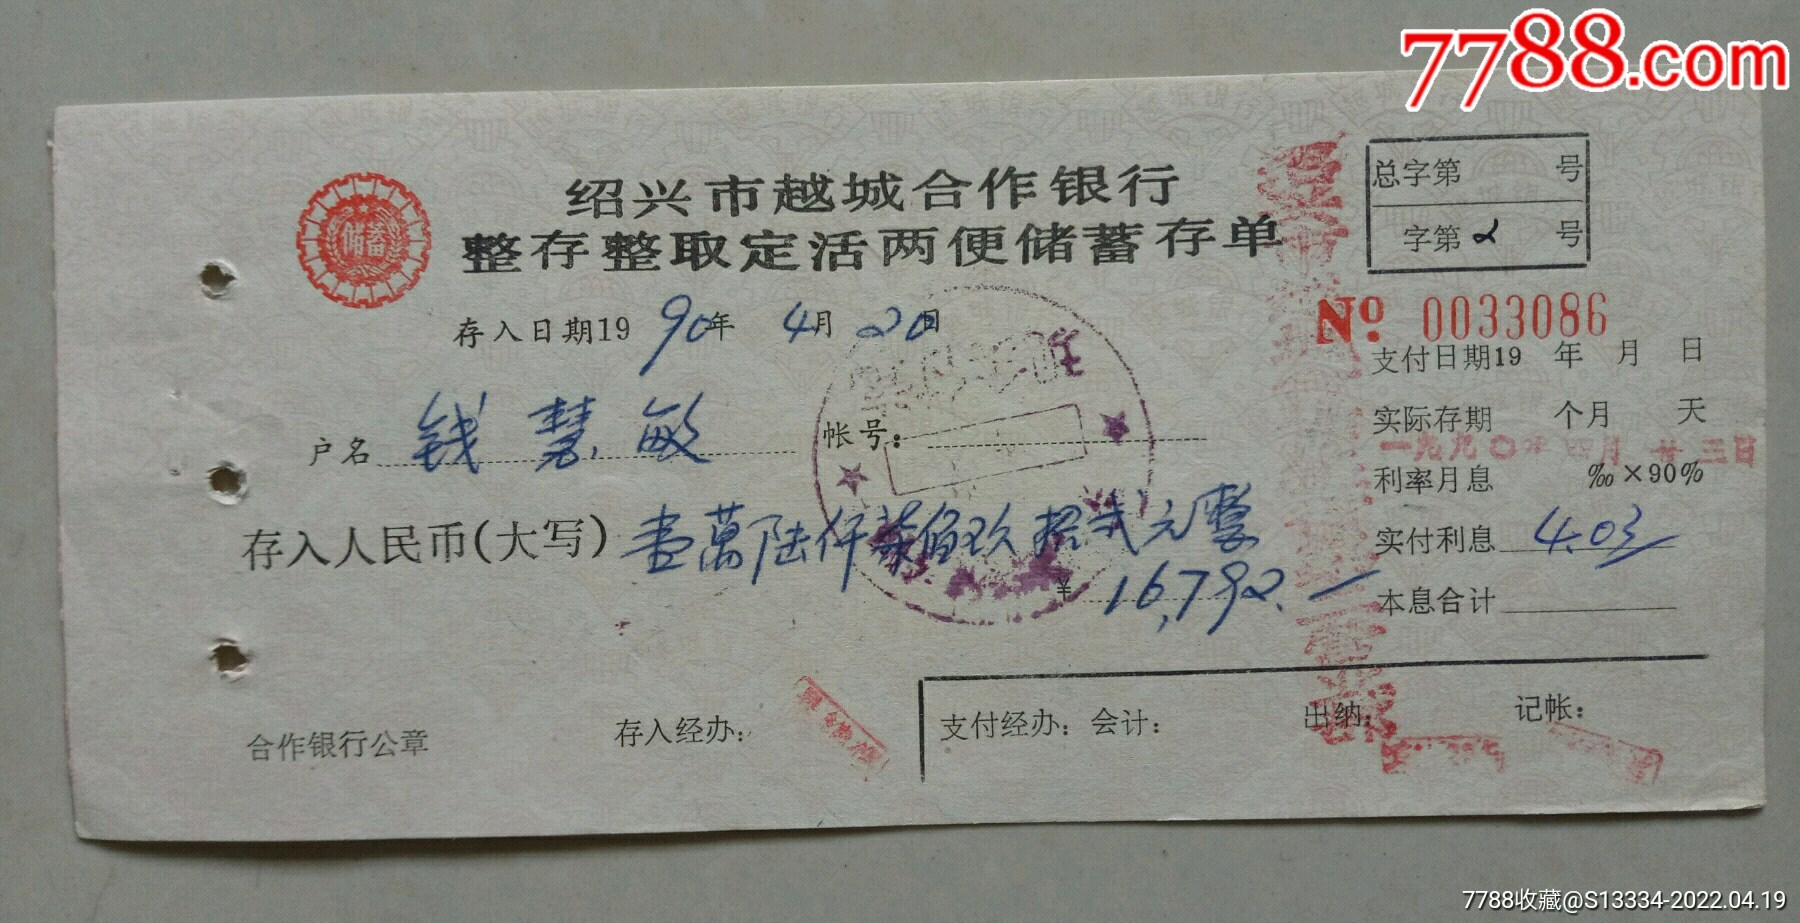 7788.com
绍兴市越城合作银行
整存整取定活两便储蓄存单
储蓄
总字第 号
字第2号
№ 0033086
存入日期1990年 4月20日
支付日期19 年 月 日
户名 钱慧敏 帐号:
实际存期 个月 天
一九九〇年四月廿三日
利率月息 ‰×90%
存入人民币(大写) 壹萬陆仟柒佰玖拾贰元整
实付利息 4.03
¥ 16,792.—
本息合计
合作银行公章
存入经办:
支付经办: 会计: 出纳: 记帐:
7788收藏@S13334-2022.04.19